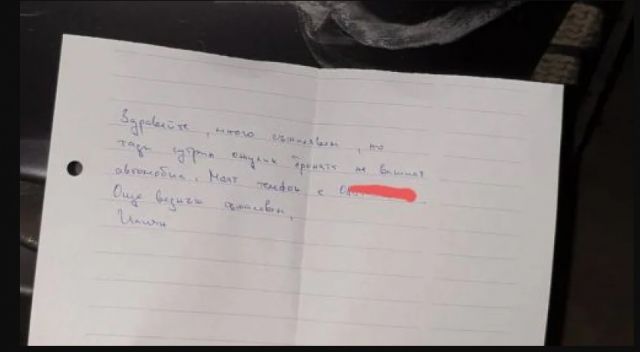 Здравейте, много съжалявам, но
тази сутрин ожулих бронята на вашият
автомобил. Моят телефон е
Още веднъж съжалявам,